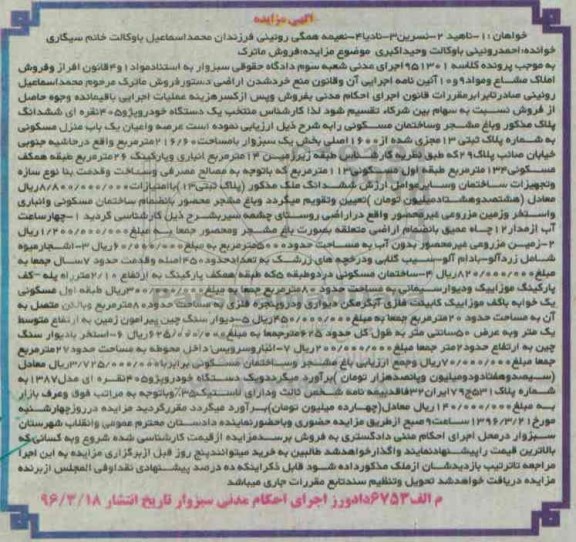 آگهی مزایده
خواهان: ۱-ناهید ۲-نسرین۳-نادیا۴-نعیمه همگی روئینی فرزندان محمداسماعیل باوکالت خانم سیگاری
خوانده: احمدروئینی باوکالت وحیداکبری موضوع مزایده:فروش ماترک
به موجب پرونده کلاسه ۹۵۱۳۰۱اجرای مدنی شعبه سوم دادگاه حقوقی سبزوار به استنادمواد۱و۴قانون افراز وفروش
املاک مشاع ومواد۹و۱۰آئین نامه اجرایی آن وقانون منع خردشدن اراضی دستورفروش ماترک مرحوم محمداسماعیل
روئینی صادرتابرابرمقررات قانون اجرای احکام مدنی بفروش وپس ازکسرهزینه عملیات اجرایی باقیمانده وجوه حاصل
از فروش نسبت به سهام بین شرکاء تقسیم شود لذا کارشناس منتخب یک دستگاه خودروپژو۴۰۵نقره ای ششدانگ
پلاک مذکور وباغ مشجر وساختمان مسکونی رابه شرح ذیل ارزیابی نموده است عرصه واعیان یک باب منزل مسکونی
به شماره پلاک ثبتی ۱۳مجزی شده از۱۶۰۰اصلی بخش یک سبزوار بامساحت۲۱۶/۶۰مترمربع واقع درحاشیه جنوبی
خیابان صائب پلاک۲۹که طبق نظریه کارشناس طبقه زیرزمین ۱۴مترمربع انباری وپارکینگ ۲۶مترمربع طبقه همکف
مسکونی۱۳۳مترمربع طبقه اول مسکونی۱۱۳مترمربع که باتوجه به مصالح مصرفی وساخت وقدمت بنا نوع سازه
وتجهیزات ساختمان وسایرعوامل ارزش ششدانگ ملک مذکور (پلاک ثبتی۱۳)باامتیازات۸/۸۰۰/۰۰۰/۰۰۰ریال
معادل (هشتصدوهشتادمیلیون تومان )تعیین وتقویم میگردد وباغ مشجر محصور بانضمام ساختمان مسکونی وانباری
واستخر وزمین مزروعی غیرمحصور واقع دراراضی روستای چشمه سیربشرح ذیل کارشناسی گردید ۱-چهارساعت
آب ازمدار۱۲چاه عمیق بانضمام اراضی متعلقه بصورت باغ مشجر ومحصور جمعا به مبلغ۱/۲۰۰/۰۰۰/۰۰۰ریال
۲-زمین مزروعی غیرمحصور بدون آب به مساحت حدود۵۰۰۰مترمربع به مبلغ۶۰/۰۰۰/۰۰۰ریال ۳-اشجارمیوه
شامل زردآلو-بادام آلو-سیب گلابی ودرختچه های زرشک به تعدادحدود۴۵۰اصله وقدمت حدود ۷سال جمعا به
مبلغ۸۲۰/۰۰۰/۰۰۰ریال ۴-ساختمان مسکونی دردوطبقه که طبقه همکف پارکینگ به ارتفاع ۲/۱۰متر پله-کف
پارکینگ موزاییک ودیوار سیمانی به مساحت حدود ۸۰مترمربع جمعا به مبلغ۳۰۰/۰۰۰/۰۰۰ریال طبقه اول مسکونی
یک خوابه باکف موزاییک کابینت فلزی آبگرمکن دیواری ودروپنجره فلزی به مساحت حدود۸۰مترمربع وبالکن متصل به
آن به مساحت حدود ۲۰مترمربع جمعا به مبلغ۴۵۰/۰۰۰/۰۰۰ریال ۵-دیوار سنگ چین پیرامون زمین به ارتفاع متوسط
یک متر وبه عرض ۵۰سانتی متر به طول کل حدود ۶۲۵مترجمعا به مبلغ۶۲۵/۰۰۰/۰۰۰ریال ۶-استخر بادیوار سنگ
چین به ارتفاع حدود۲متر جمعا مبلغ۲۰۰/۰۰۰/۰۰۰ریال ۷-انباروسرویس داخل محوطه به مساحت حدود۲۷مترمربع
جمعا مبلغ۷۰/۰۰۰/۰۰۰ریال وجمع ارزیابی باغ مشجر وساختمان مسکونی برابربا۳/۷۲۵/۰۰۰/۰۰۰ریال معادل
(سیصدوهفتادودومیلیون وپانصدهزار تومان )برآورد میگرددویک دستگاه خودروپژو۴۰۵نقره ای مدل۱۳۸۷به
شماره پلاک۵۳۱ج۷۹ایران۳۲فاقدبیمه نامه شخص ثالث ودارای لاستیک۳۵٪وباتوجه به مراتب فوق وعرف بازار
به مبلغ۱۴۰/۰۰۰/۰۰۰ریال معادل(چهارده میلیون تومان)برآورد میگردد مقررگردید مزایده درروزچهارشنبه
مورخ۱۳۹۶/۳/۲۱ساعت۹صبح ازطریق مزایده حضوری وباحضورنماینده دادستان محترم عمومی وانقلاب شهرستان
سبزوار درمحل اجرای احکام مدنی دادگستری به فروش برسدمزایده ازقیمت کارشناسی شده شروع وبه کسانی که
بالاترین قیمت راپیشنهادنمایند واگذارخواهدشد طالبین به خرید میتوانندپنج روز قبل ازبرگزاری مزایده به این اجرا
مراجعه تاترتیب بازدیدشان ازملک مذکورداده شود قابل ذکراینکه ده درصد پیشنهادی نقداوفی المجلس ازبرنده
مزایده دریافت خواهدشد تحویل وتنظیم سندتابع مقررات جاری میباشد
م الف۶۷۵۳دادورز اجرای احکام مدنی سبزوار تاریخ انتشار ۹۶/۳/۱۸